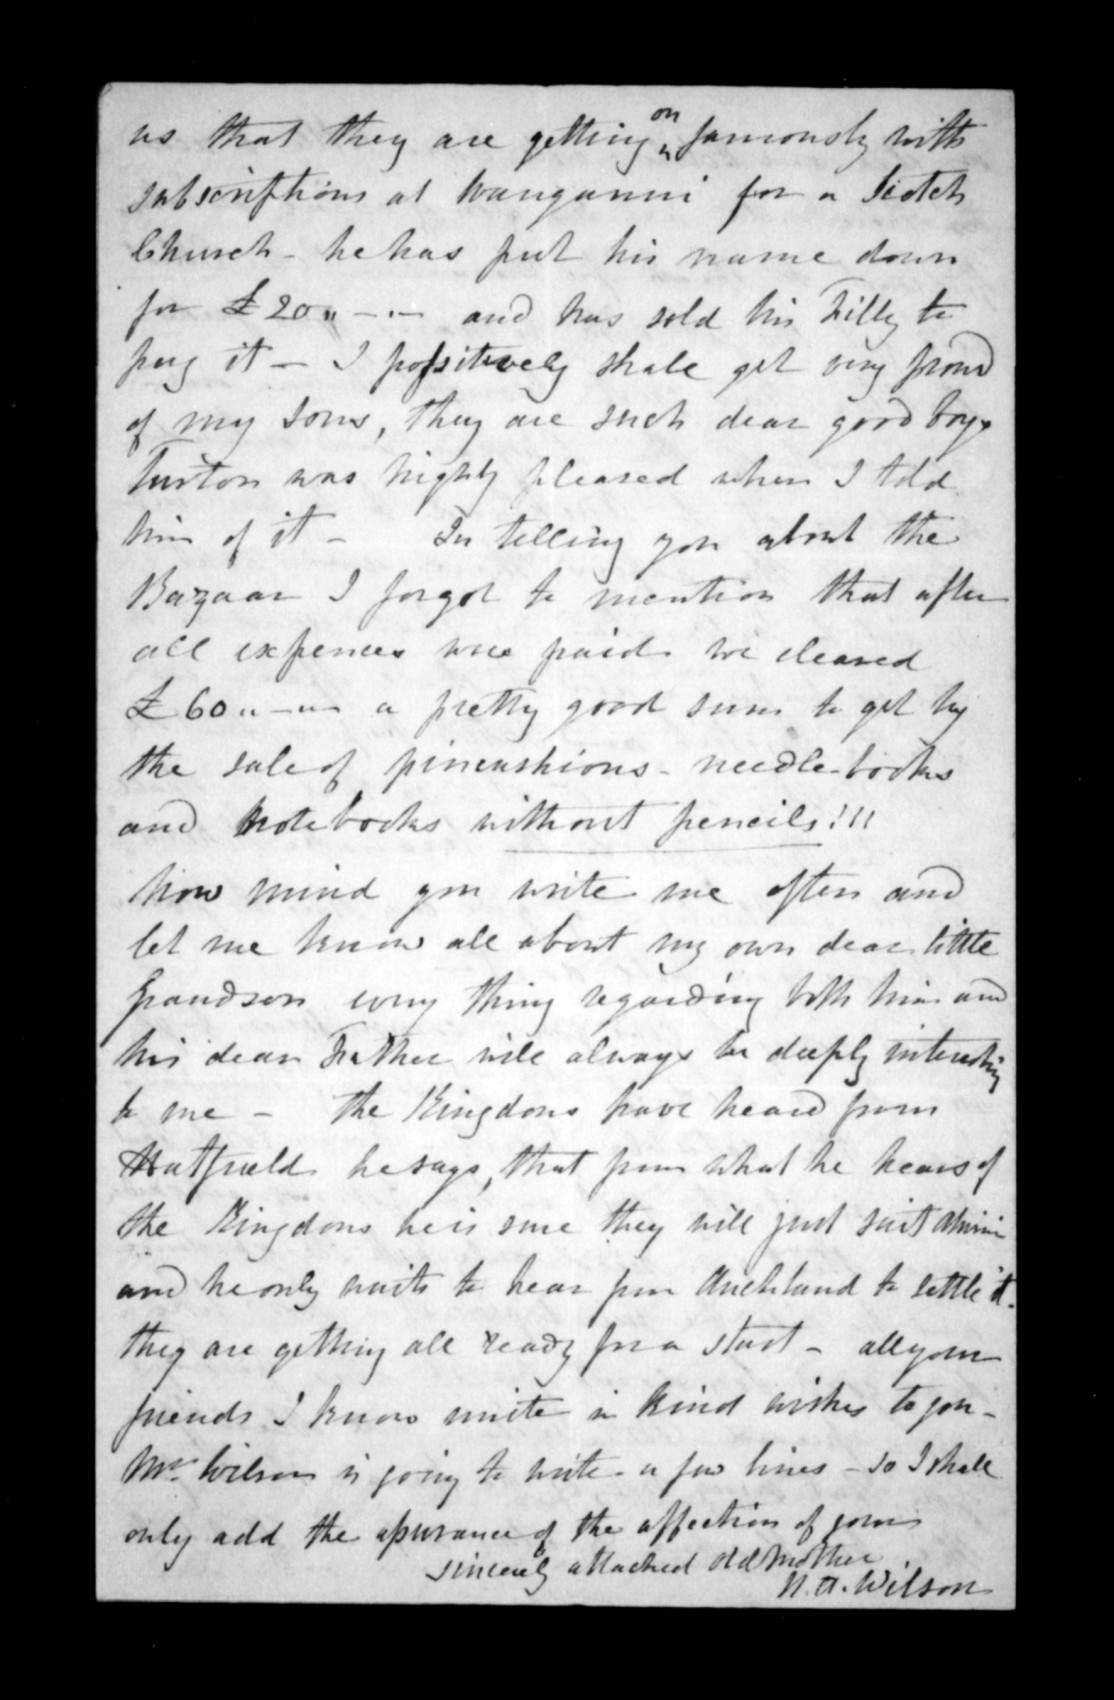 us that they are getting on famously with
subscriptions at Wanganui for a Scotch
Church - he has put his name down
for £20 " - " - and has sold his Filly to
pay it - I possitively shall get very proud
of my sons, they are such dear good boys
Turton was highly pleased when I told
him of it - In telling you about the
Bazaar I forgot to mention that after
all expences were paid we cleared
£60 " - " - a pretty good sum to get by
the sale of pincushions - needle-books
and Notebooks without pencils!!!
Now mind you write me often and
let me know all about my own dear little
Grandson every thing regarding both him and
his dear Father will always be deeply interesting
to me - The Kingdons have heard from
Hatfield he says, that from what he hears of
the Kingdons he is sure they will just suit
and he only waits to hear from Auckland to settle it -
they are getting all ready for a start - all your
friends I know unite in kind wishes to you -
Mrs. Wilson is going to write a few lines - so I shall
only add the assurance of the affection of your
sincerely attached old Mother
N. A. Wilson